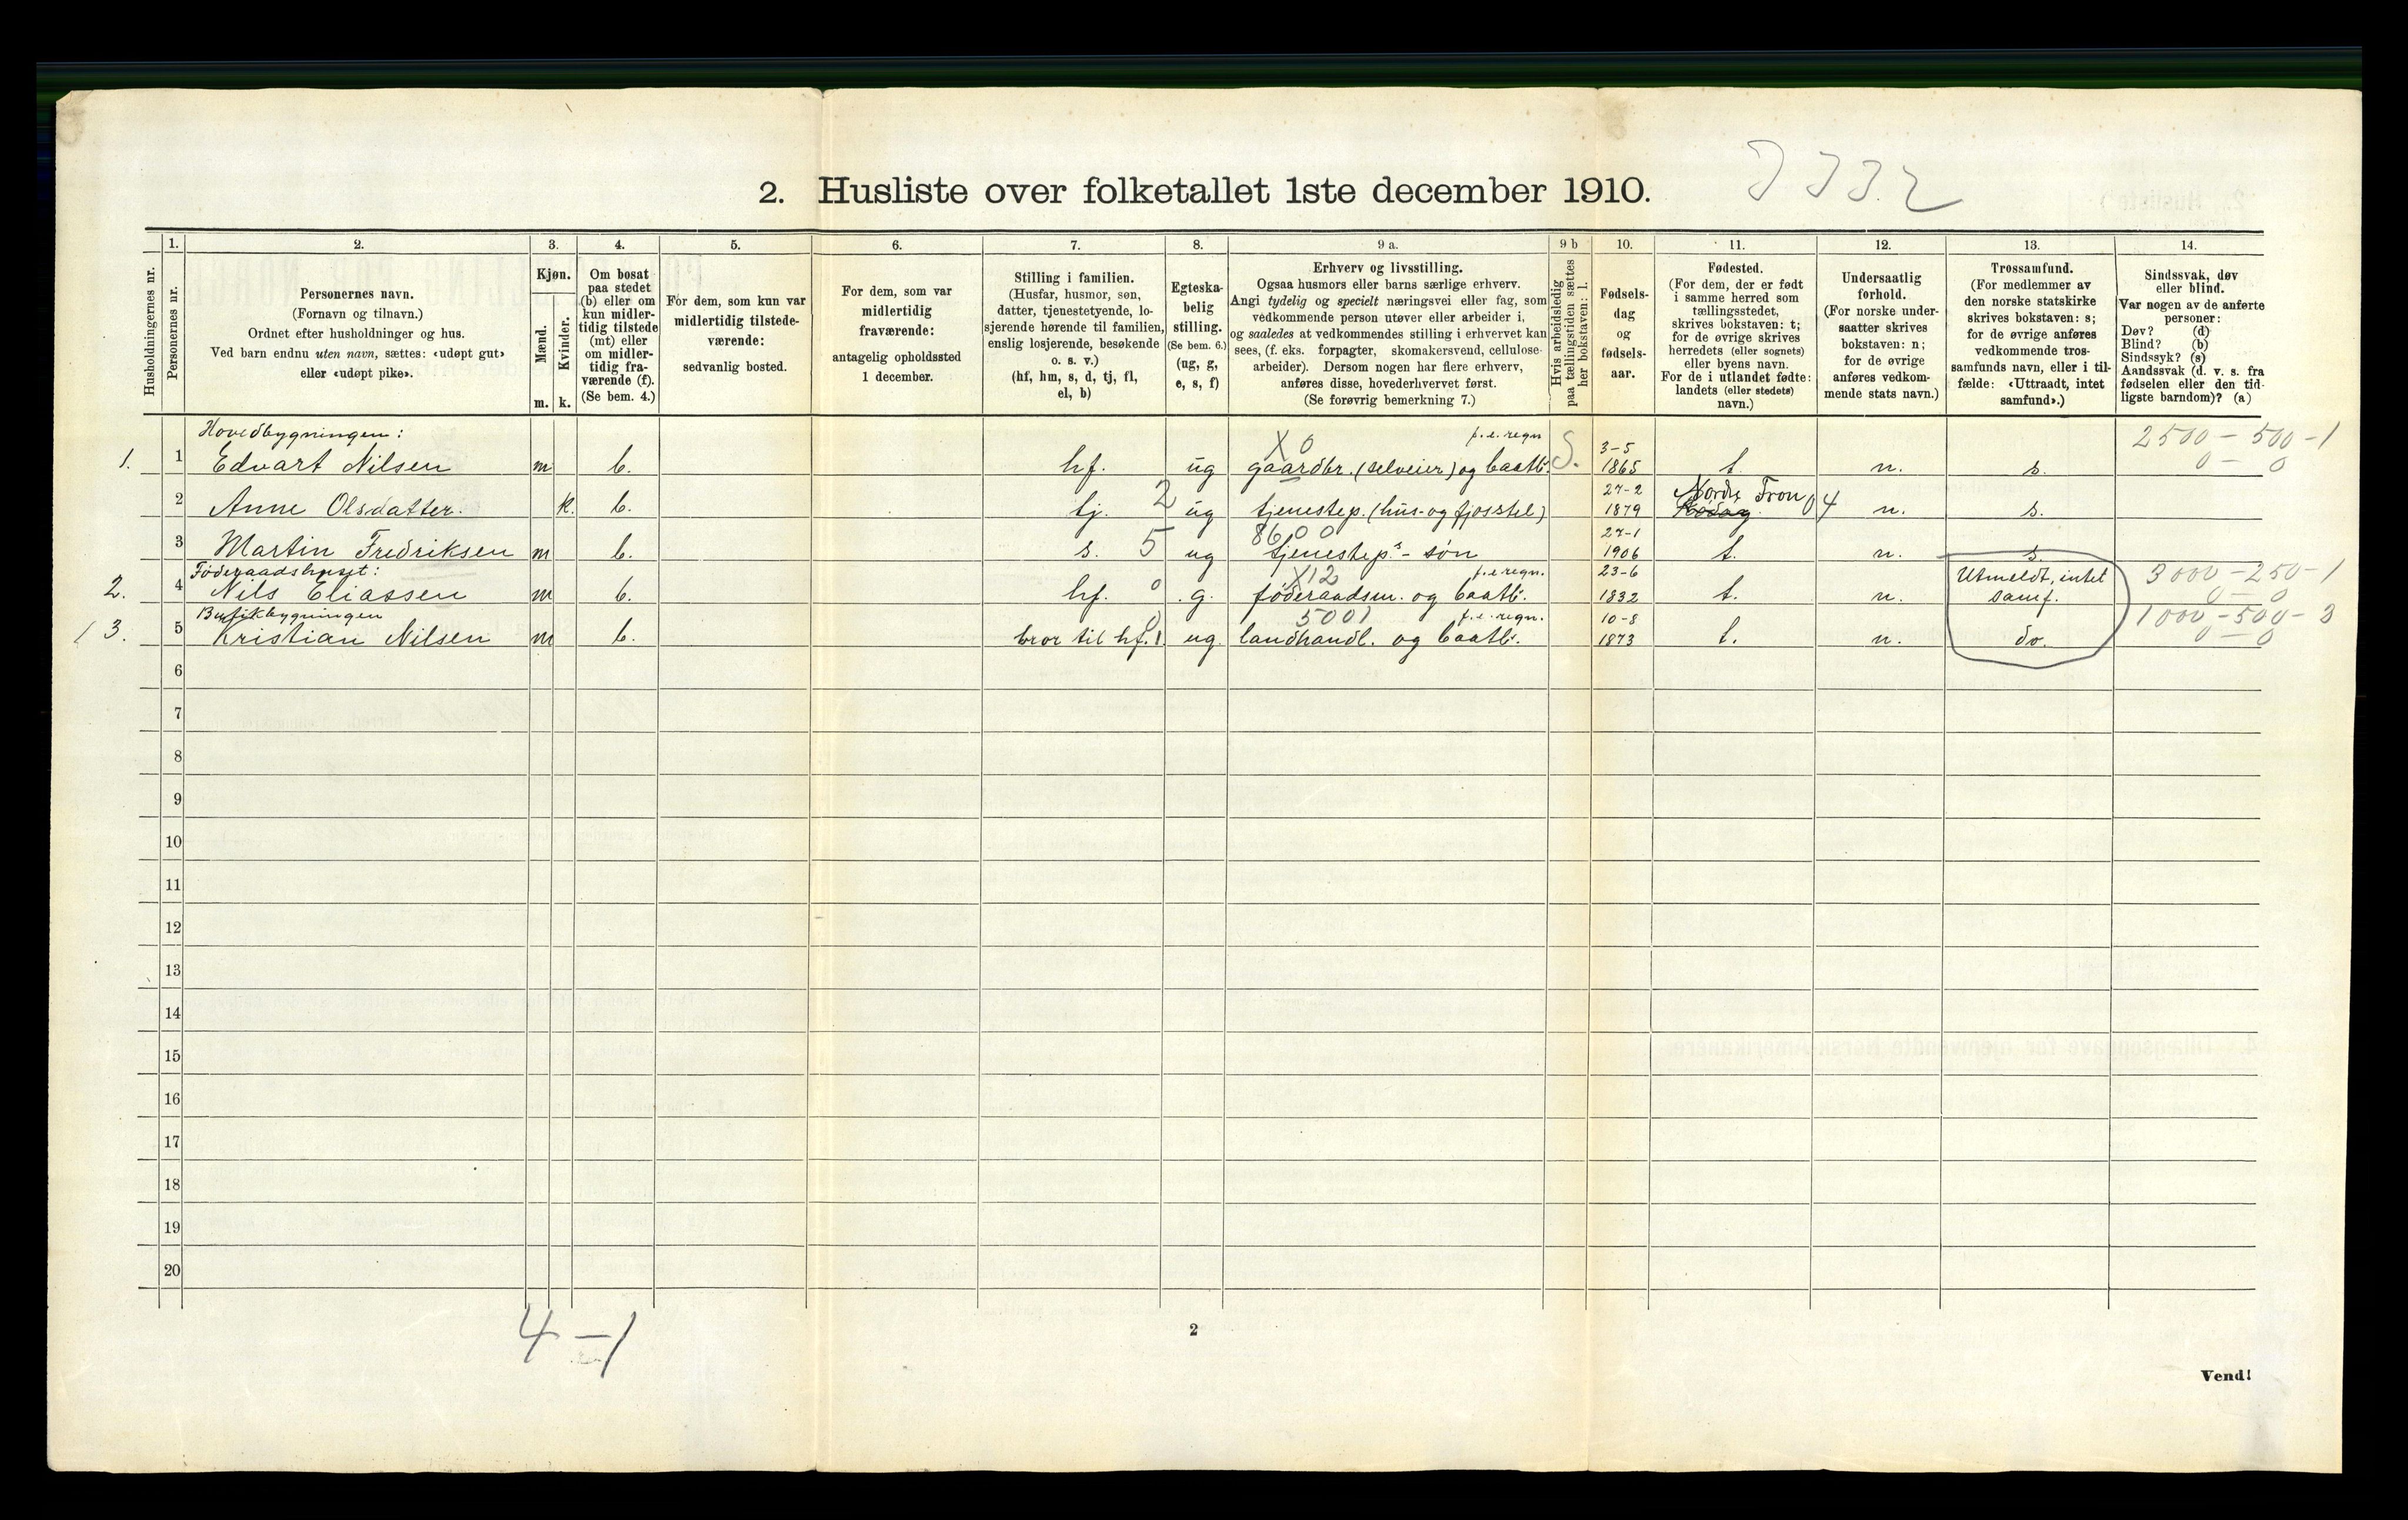 2. Husliste over folketallet 1ste december 1910.
1. 2. 3. 4. 5. 6. 7. 8. 9 a. 9 b 10. 11. 12. 13. 14.
Husholdningernes nr.
Personernes nr.
Personernes navn.
(Fornavn og tilnavn.)
Ordnet efter husholdninger og hus.
Ved barn endnu uten navn, sættes: «udøpt gut»
eller «udøpt pike».
Kjøn.
Mænd.
Kvinder.
m. k.
Om bosat
paa stedet
(b) eller om
kun midler-
tidig tilstede
(mt) eller
om midler-
tidig fra-
værende (f).
(Se bem. 4.)
For dem, som kun var
midlertidig tilstede-
værende:
sedvanlig bosted.
For dem, som var
midlertidig
fraværende:
antagelig opholdssted
1 december.
Stilling i familien.
(Husfar, husmor, søn,
datter, tjenestetyende, lo-
sjerende hørende til familien,
enslig losjerende, besøkende
o. s. v.)
(hf, hm, s, d, tj, fl,
el, b)
Egteska-
belig
stilling.
(Se bem. 6.)
(ug, g,
e, s, f)
Erhverv og livsstilling.
Ogsaa husmors eller barns særlige erhverv.
Angi tydelig og specielt næringsvei eller fag, som
vedkommende person utøver eller arbeider i,
og saaledes at vedkommendes stilling i erhvervet kan
sees, (f. eks. forpagter, skomakersvend, cellulose-
arbeider). Dersom nogen har flere erhverv,
anføres disse, hovederhvervet først.
(Se forøvrig bemerkning 7.)
Hvis arbeidsledig
paa tællingstiden sættes
her bokstaven: l.
Fødsels-
dag
og
fødsels-
aar.
Fødested.
(For dem, der er født
i samme herred som
tællingsstedet,
skrives bokstaven: t;
for de øvrige skrives
herredets (eller sognets)
eller byens navn.
For de i utlandet fødte:
landets (eller stedets)
navn.)
Undersaatlig
forhold.
(For norske under-
saatter skrives
bokstaven: n;
for de øvrige
anføres vedkom-
mende stats navn.)
Trossamfund.
(For medlemmer av
den norske statskirke
skrives bokstaven: s;
for de øvrige anføres
vedkommende tros-
samfunds navn, eller i til-
fælde: «Uttraadt, intet
samfund».)
Sindssvak, døv
eller blind.
Var nogen av de anførte
personer:
Døv? (d)
Blind? (b)
Sindssyk? (s)
Aandssvak (d. v. s. fra
fødselen eller den tid-
ligste barndom)? (a)
Hovedbygningen: X 0 f.e.regn 3-5 2500 - 500 - 1
1. 1 Edvart Nilsen m b. hf. ug gaardbr. (selveier) og baatb. S. 1865 t. n. s. 0 - 0
27-2 Nordre Fron
2 Anne Olsdatter. k. b. tj. 2 ug tjenestep. (hus- og fjosstel) 1879 04 n. s.
8600 27-1
3 Martin Fredriksen m b. s. 5 ug tjenestep.s - søn 1906 t. n. s.
Føderaadshuset: X12 f.e.regn. 23-6 Utmeldt, intet 3000 - 250 - 1
2. 4 Nils Eliassen m b. hf. 0 g. føderaadsm. og baatb. 1832 t. n. samf. 0 - 0
Butikbygningen 5001 f.e.regn. 10-8 1000 - 500 - 3
3. 5 Kristian Nilsen m b. bror til hf. 1. ug. landhandl. og baatb. 1873 t. n. do. 0 - 0
6
7
8
9
10
11
12
13
14
15
16
17
18
19
20
4 - 1
2
Vend!